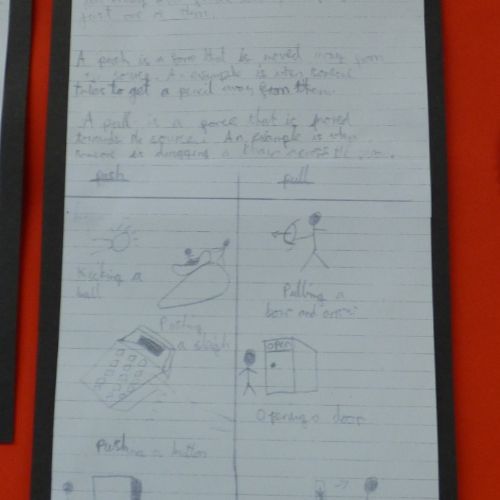 just one of them.
A push is a force that is moved away from
the source. An example is when someone
tries to get a pencil away from them.
A pull is a force that is moved
towards the source. An example is when
someone is dragging a chair across the room.
push
pull
Kicking a
ball
Pushing
a sleigh
Pulling a
bow and arrow
open
Opening a door
Pushing a button